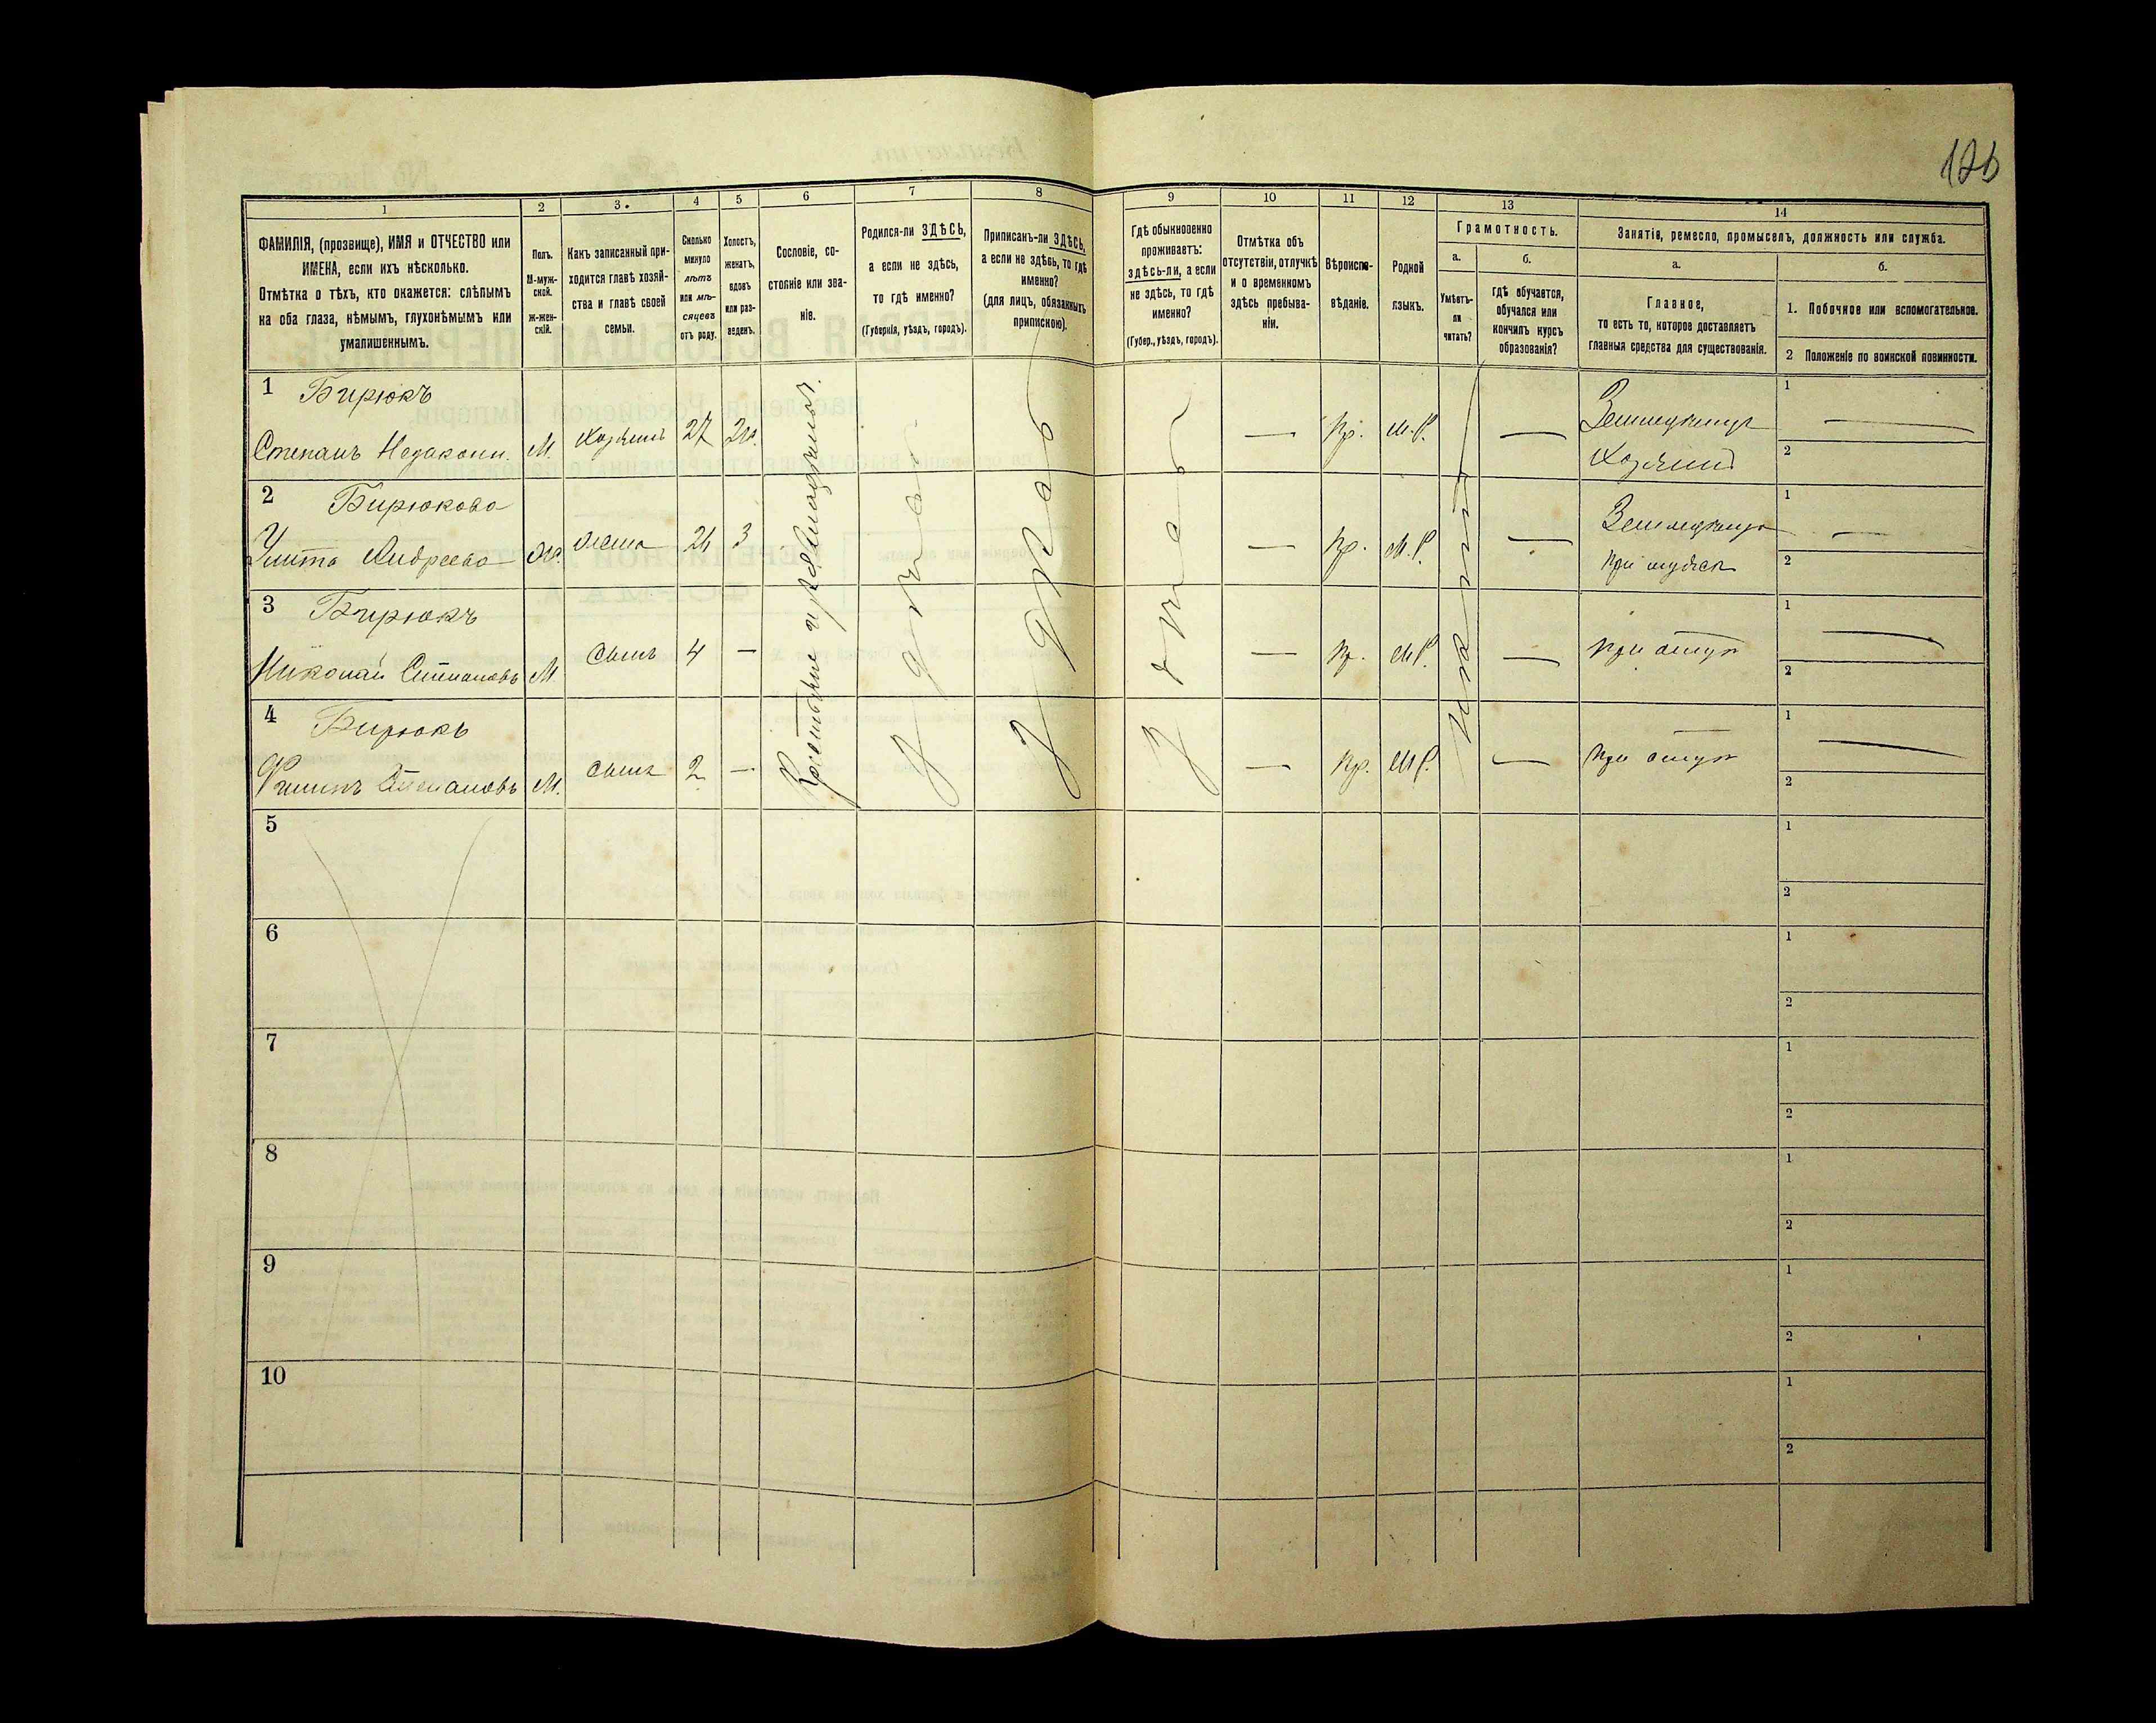 126
1
2
3.
4
5
6
7
8
9
10
11
12
13
14
ФАМИЛІЯ, (прозвище), ИМЯ и ОТЧЕСТВО или
ИМЕНА, если ихъ нѣсколько.
Отмѣтка о тѣхъ, кто окажется: слѣпымъ
на оба глаза, нѣмымъ, глухонѣмымъ или
умалишеннымъ.
Полъ.
М-муж-
ской.
ж-жен-
скій.
Какъ записанный при-
ходится главѣ хозяй-
ства и главѣ своей
семьи.
Сколько
минуло
лѣтъ
или мѣ-
сяцевъ
отъ роду.
Холостъ,
женатъ,
вдовъ
или раз-
веденъ.
Сословіе, со-
стояніе или зва-
ніе.
Родился-ли ЗДѢСЬ,
а если не здѣсь,
то гдѣ именно?
(Губернія, уѣздъ, городъ).
Приписанъ-ли ЗДѢСЬ,
а если не здѣсь, то гдѣ
именно?
(для лицъ, обязанныхъ
припискою).
Гдѣ обыкновенно
проживаетъ:
здѣсь-ли, а если
не здѣсь, то гдѣ
именно?
(Губер., уѣздъ, городъ).
Отмѣтка объ
отсутствіи, отлучкѣ
и о временномъ
здѣсь пребыва-
ніи.
Вѣроиспо-
вѣданіе.
Родной
языкъ.
Грамотность.
а.
Умѣетъ-
ли
читать?
б.
гдѣ обучается,
обучался или
кончилъ курсъ
образованія?
Занятіе, ремесло, промыселъ, должность или служба.
а.
Главное,
то есть то, которое доставляетъ
главныя средства для существованія.
б.
1. Побочное или вспомогательное.
2 Положеніе по воинской повинности.
1 Бирюкъ
Степанъ М. Хозяинъ 27 Кр. М.Р. Земледѣлецъ
Хозяинъ
1
2
2 Бирюкова
Улита Андреева ж. жена 26 3 Кр. М.Р.
при мужѣ
1
2
3 Бирюкъ
Николай Степановъ М. сынъ 4 — Кр. М.Р. при отцѣ
1
2
4 Бирюкъ
Филипъ Степановъ М. сынъ 2 — Кр. М.Р. при отцѣ
1
2
здѣсь
здѣсь
здѣсь
5
1
2
6
1
2
7
1
2
8
1
2
9
1
2
10
1
2